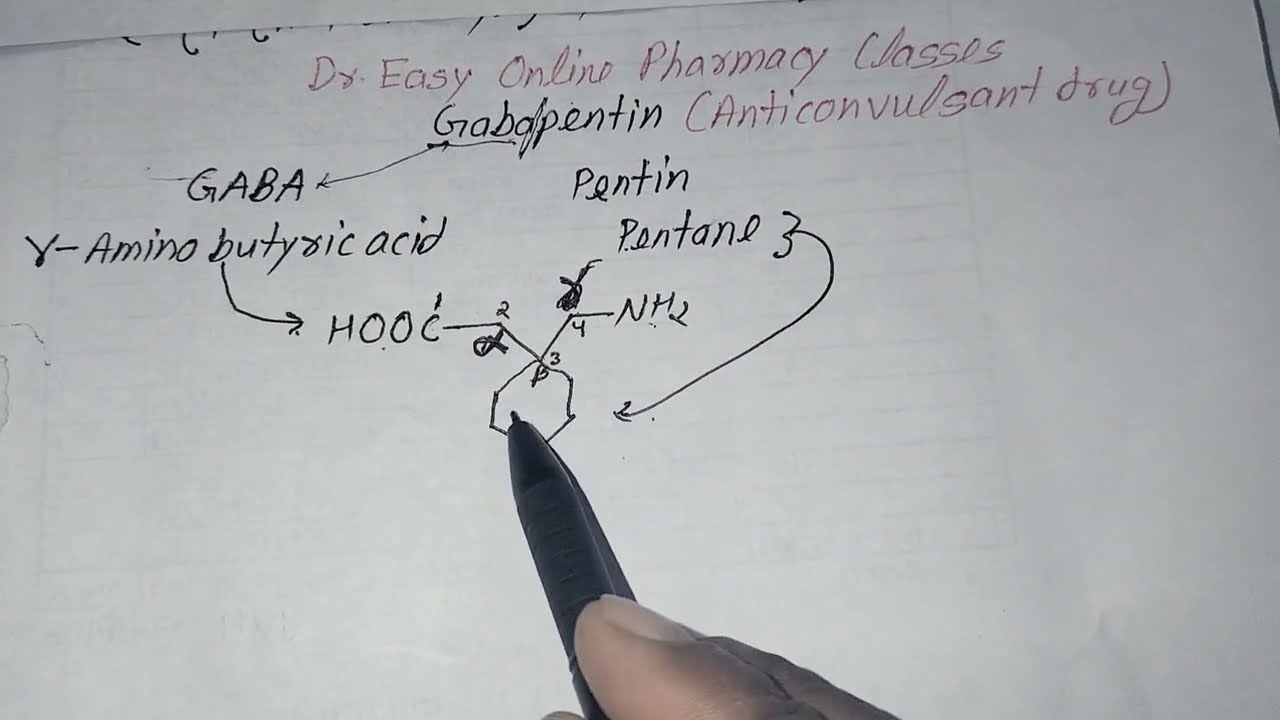 Dr. Easy Online Pharmacy Classes
Gaba/pentin (Anticonvulsant drug)
GABA Pentin
γ-Amino butyric acid Pentane }
HOOC 1 2 α 3 β 4 γ NH2